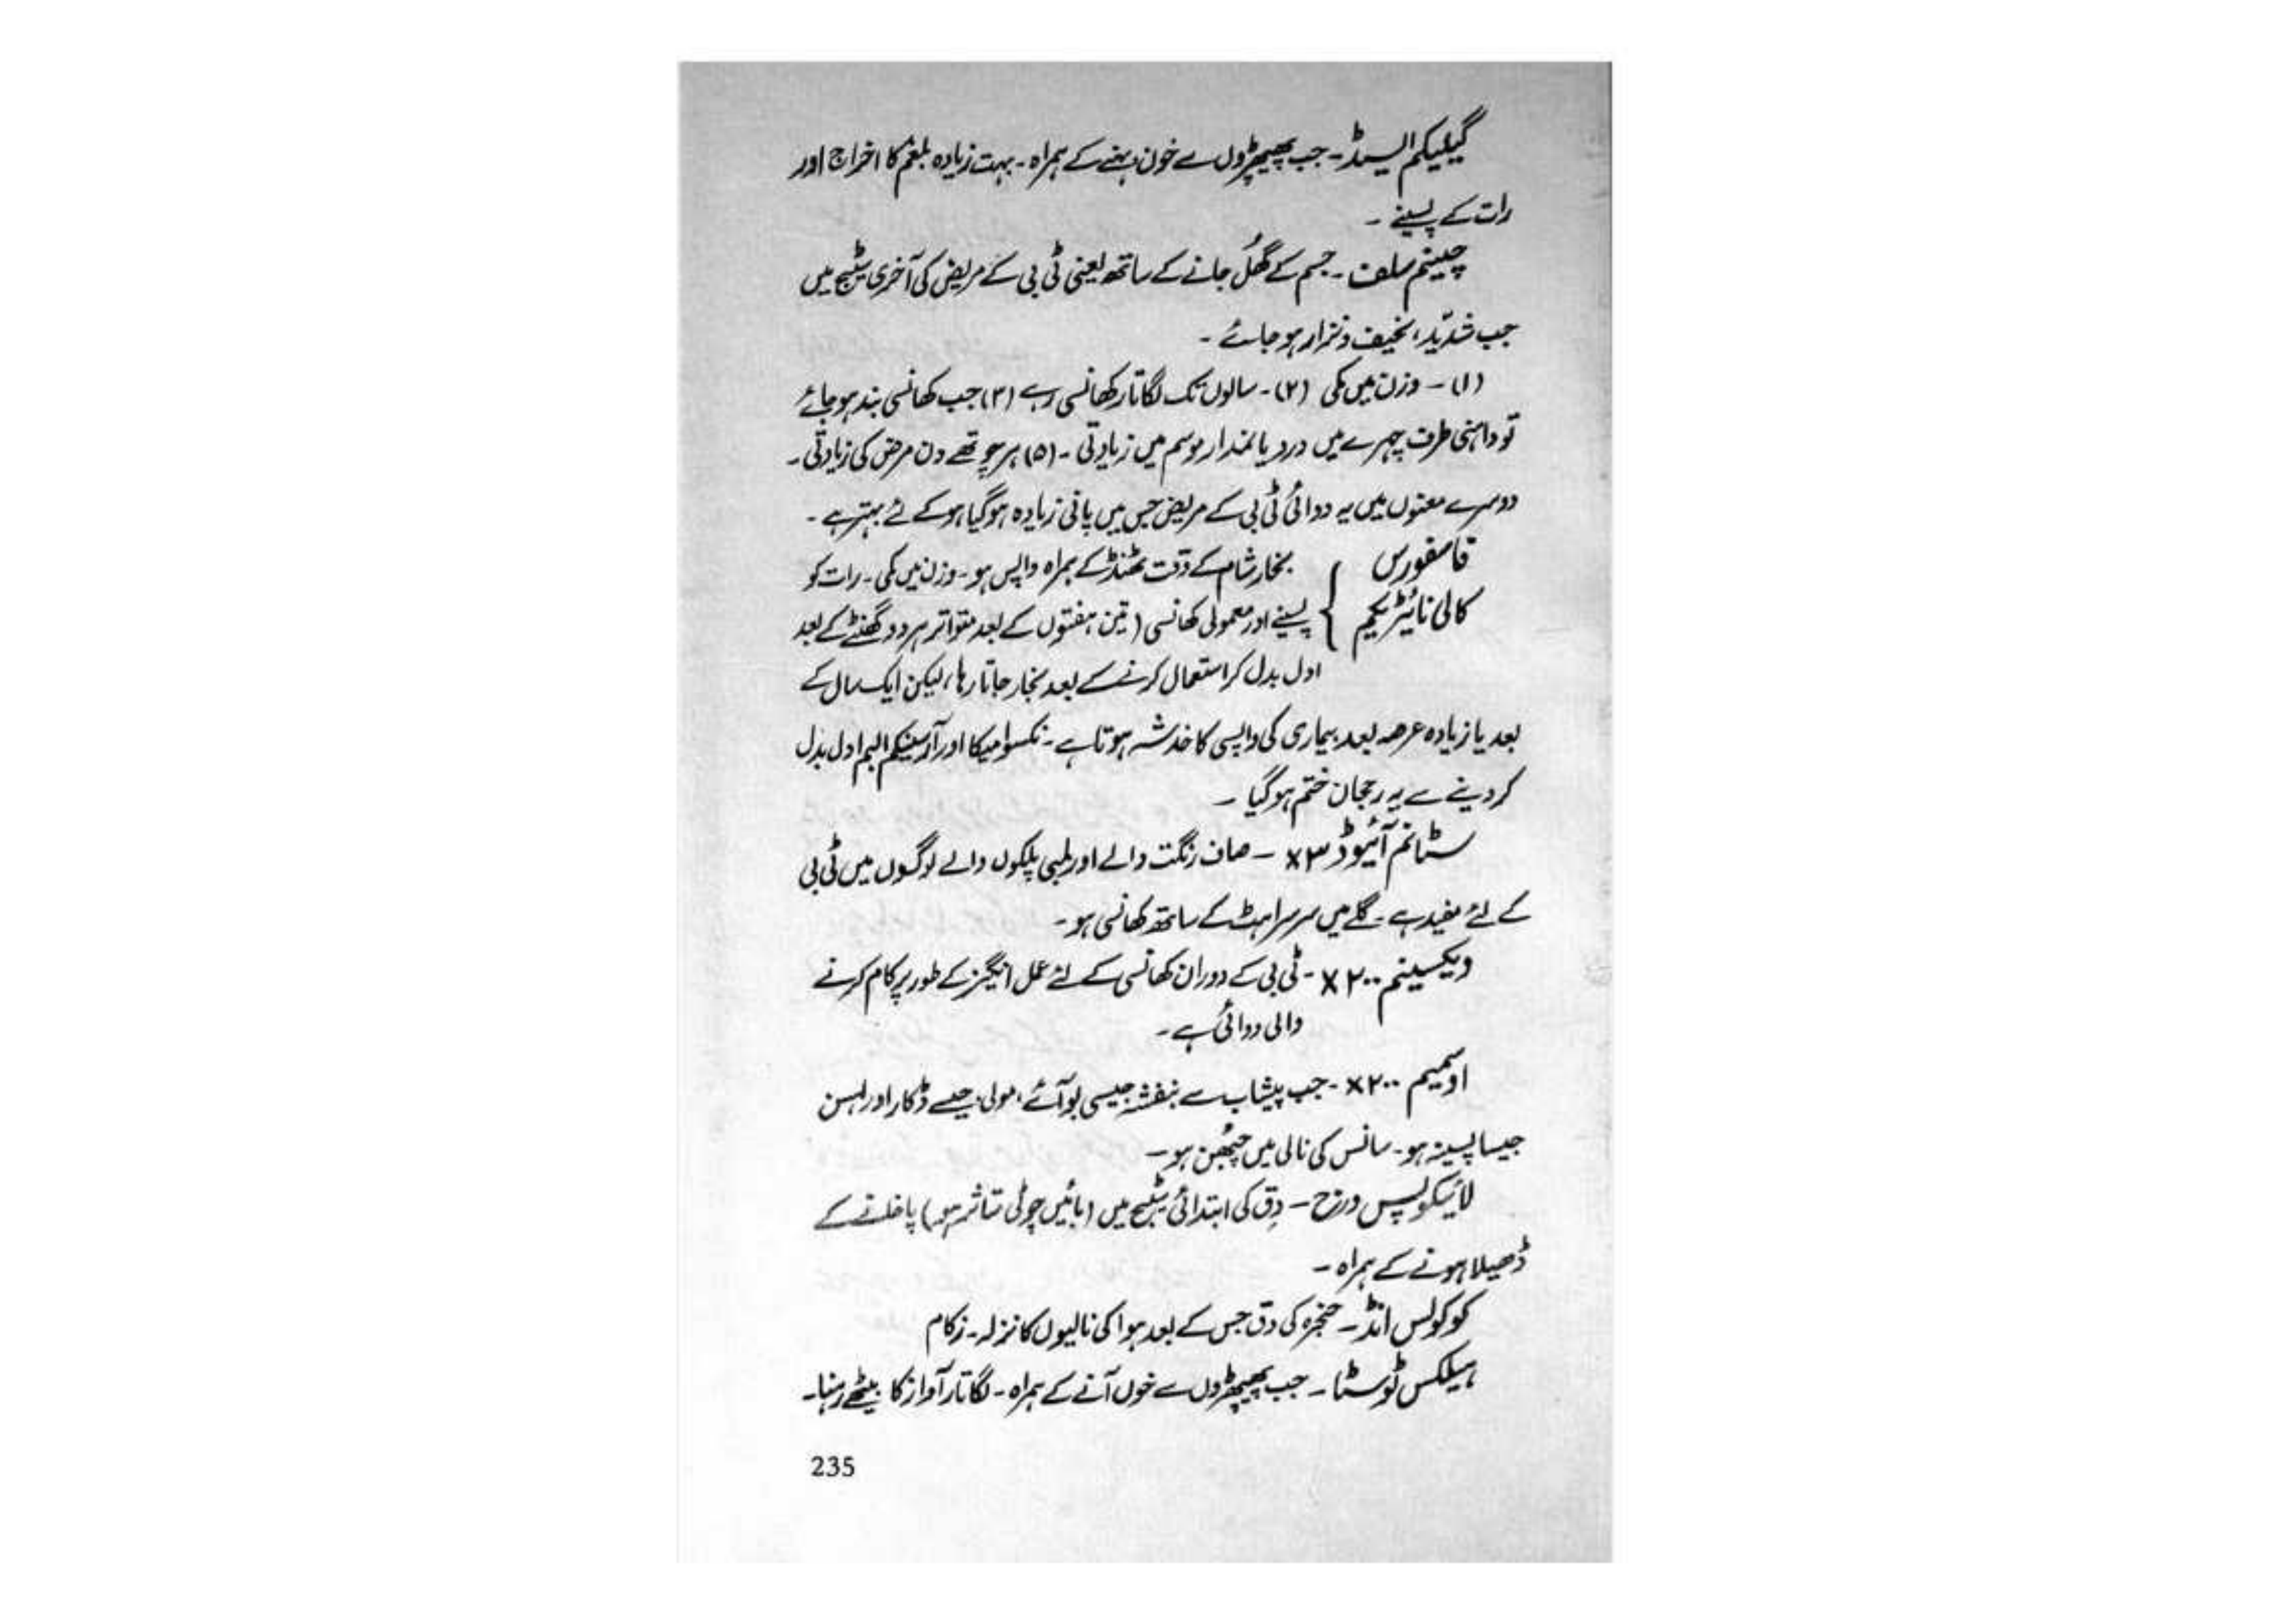 گیلیکم ایسڈ - جب پھیپھڑوں سے خون بہنے کے ہمراہ - بہت زیادہ بلغم کا اخراج اور
رات کے پسینے -
چینم سلف - جسم کے گھُل جانے کے ساتھ یعنی ٹی بی کے مریض کی آخری سٹیج میں
جب شدید، نحیف ونزار ہو جائے -
(۱) - وزن میں کمی (۲) - سالوں تک لگاتار کھانسی رہے (۳) جب کھانسی بند ہو جائے
تو داہنی طرف چہرے میں درد یا نمدار موسم میں زیادتی - (۵) ہر چوتھے دن مرض کی زیادتی -
دوسرے معنوں میں یہ دوائی ٹی بی کے مریض جس میں پانی زیادہ ہو گیا ہو کے لئے بہتر ہے -
فاسفورس } بخار شام کے وقت ٹھنڈ کے ہمراہ واپس ہو - وزن میں کمی - رات کو
کالی نائیٹریکم } پسینے اور معمولی کھانسی (تین ہفتوں کے بعد متواتر ہر دو گھنٹے کے بعد
ادل بدل کر استعمال کرنے کے بعد بخار جاتا رہا، لیکن ایک سال کے
بعد یا زیادہ عرصہ بعد بیماری کی واپسی کا خدشہ ہوتا ہے - نکسوامیکا اور آرسینکم البم ادل بدل
کر دینے سے یہ رحجان ختم ہو گیا -
سٹانم آئیوڈ ۳x - صاف رنگت والے اور لمبی پلکوں والے لوگوں میں ٹی بی
کے لئے مفید ہے - گلے میں سرسراہٹ کے ساتھ کھانسی ہو -
ویکسینم ۲۰۰ x - ٹی بی کے دوران کھانسی کے لئے عمل انگیز کے طور پر کام کرنے
والی دوائی ہے -
اوسمیم ۲۰۰ x - جب پیشاب سے بنفشہ جیسی بو آئے، مولی جیسے ڈکار اور لہسن
جیسا پسینہ ہو - سانس کی نالی میں چبھن ہو -
لائیکوپس ورج - دِق کی ابتدائی سٹیج میں (بائیں چوٹی متاثر ہو) پاخانے کے
ڈھیلا ہونے کے ہمراہ -
کوکولس انڈ - حنجرہ کی دق جس کے بعد ہوا کی نالیوں کا نزلہ - زکام
ہیلکس ٹوسٹا - جب پھیپھڑوں سے خون آنے کے ہمراہ - لگاتار آواز کا بیٹھے رہنا -
235